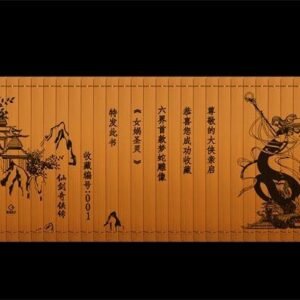 尊敬的大侠亲启
恭喜您成功收藏
六界首款梦蛇雕像
《女娲圣灵》
特发此书
收藏编号:001
仙剑奇侠传